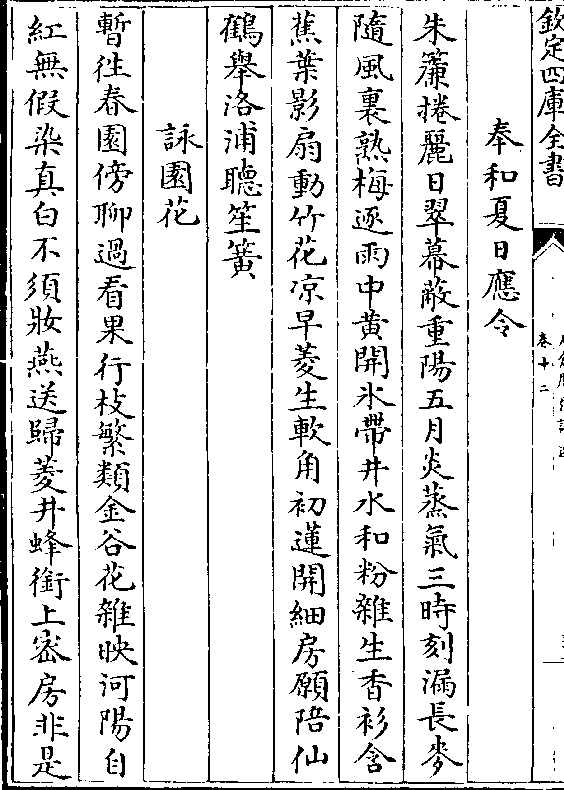 欽定四庫全書
卷十二
奉和夏日應令
朱簾捲麗日翠幕蔽重陽五月炎蒸氣三時刻漏長麥
隨風裏熟梅逐雨中黄開氷帶井水和粉雜生香衫含
蕉葉影扇動竹花凉早菱生軟角初蓮開細房願陪仙
鶴舉洛浦聽笙簧
詠園花
暫徃春園傍聊過看果行枝繁類金谷花雜映河陽自
紅無假染真白不須妝燕送歸菱井蜂銜上宻房非是